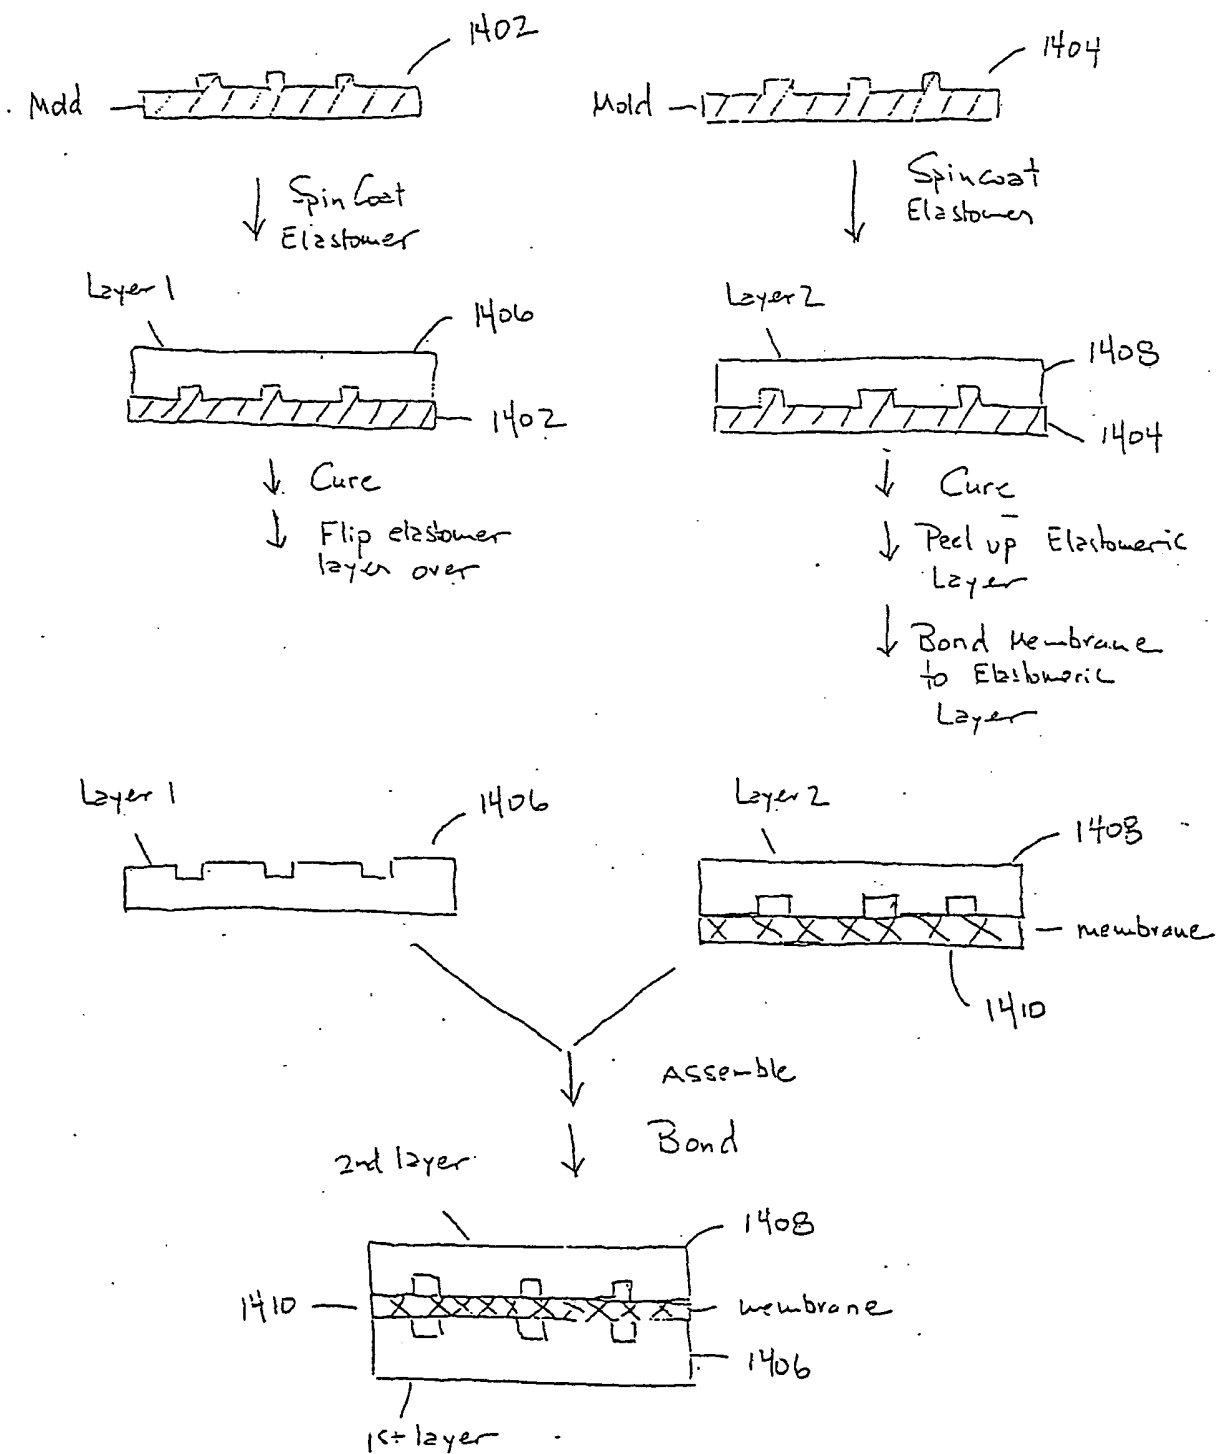 1402
1404
Mold
Mold
Spin Coat
Elastomer
Spin coat
Elastomer
Layer 1
1406
1402
Layer 2
1408
1404
Cure
Flip elastomer
layer over
Cure
Peel up Elastomeric
Layer
Bond Membrane
to Elastomeric
Layer
Layer 1
1406
Layer 2
1408
membrane
1410
Assemble
Bond
2nd layer
1408
1410
membrane
1406
1st layer